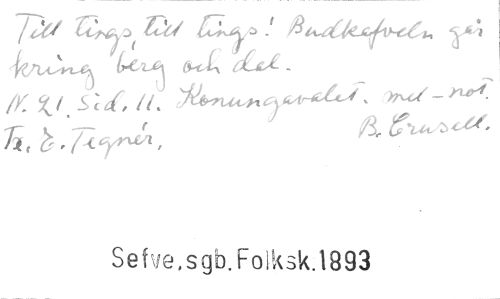 Till tings, till tings! Budkafveln går
kring berg och dal.
N. 21. Sid. 11. Konungavalet. mel-not.
Tx. E. Tegnér. B. Crusell.
Sefve, sgb. Folksk. 1893